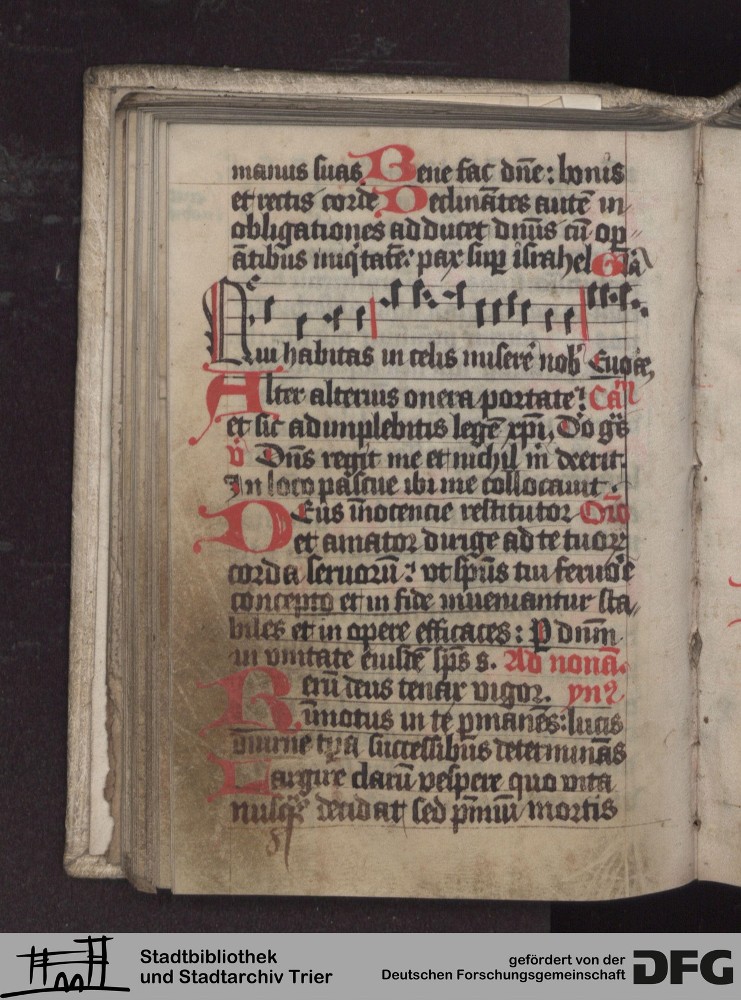 manus suas Bene fac dn̄e: bonis
et rectis corde Declinātes autē in
obligationes adducet dn̄us cū op̄
ātibus iniq̇tatē: pax sup̄ israhel Gl̄a
Qui habitas in celis miserē nob̄ Euoae,
Alter alterius onera portate: Cal̄
et sic adimplebitis legē xp̄i, Do gr̄s
v̄ Dn̄s regit me et nichil m̄ deerit
In loco pascue ibi me collocauit.
Deus īnocencie restitutor Or̄o
et amator dirige ad te tuoꝝ
corda seruorū: vt sp̄us tui feruo᷑e
concepto et in fide inueniantur sta,
biles et in opere efficaces: P dn̄m
in vnitate eiusdē sp̄s s. Ad nonā.
Rerū deus tenax vigor. ympnꝰ
Īmotus in te p̄manēs: lucis
diurne tp̄a successibus determinās
Largire clarū vespere quo vita
nusq̄ᷓ decidat sed p̄miū mortis
Stadtbibliothek
und Stadtarchiv Trier
gefördert von der
Deutschen Forschungsgemeinschaft
DFG